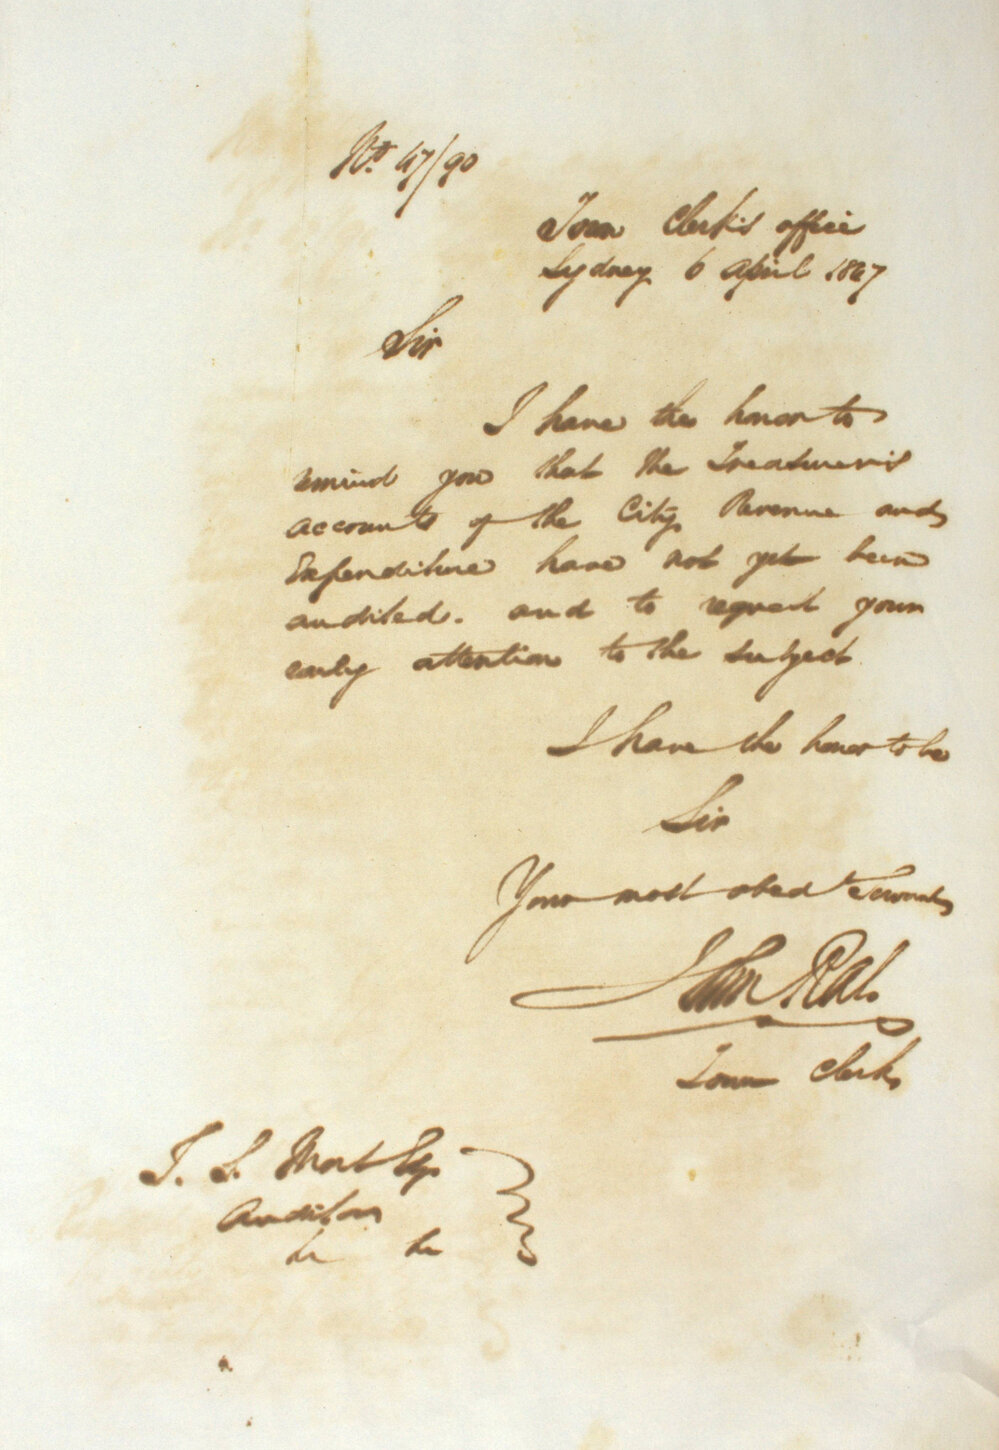 No. 47/90
Town Clerk's office
Sydney 6 April 1847
Sir
I have the honor to
remind you that the Treasurer's
accounts of the City Revenue and
Expenditure have not yet been
audited. and to request your
early attention to the subject
I have the honor to be
Sir
Your most obedt Servant
John Rae
Town Clerk
T. S. Mort Esq
Auditor
&c &c